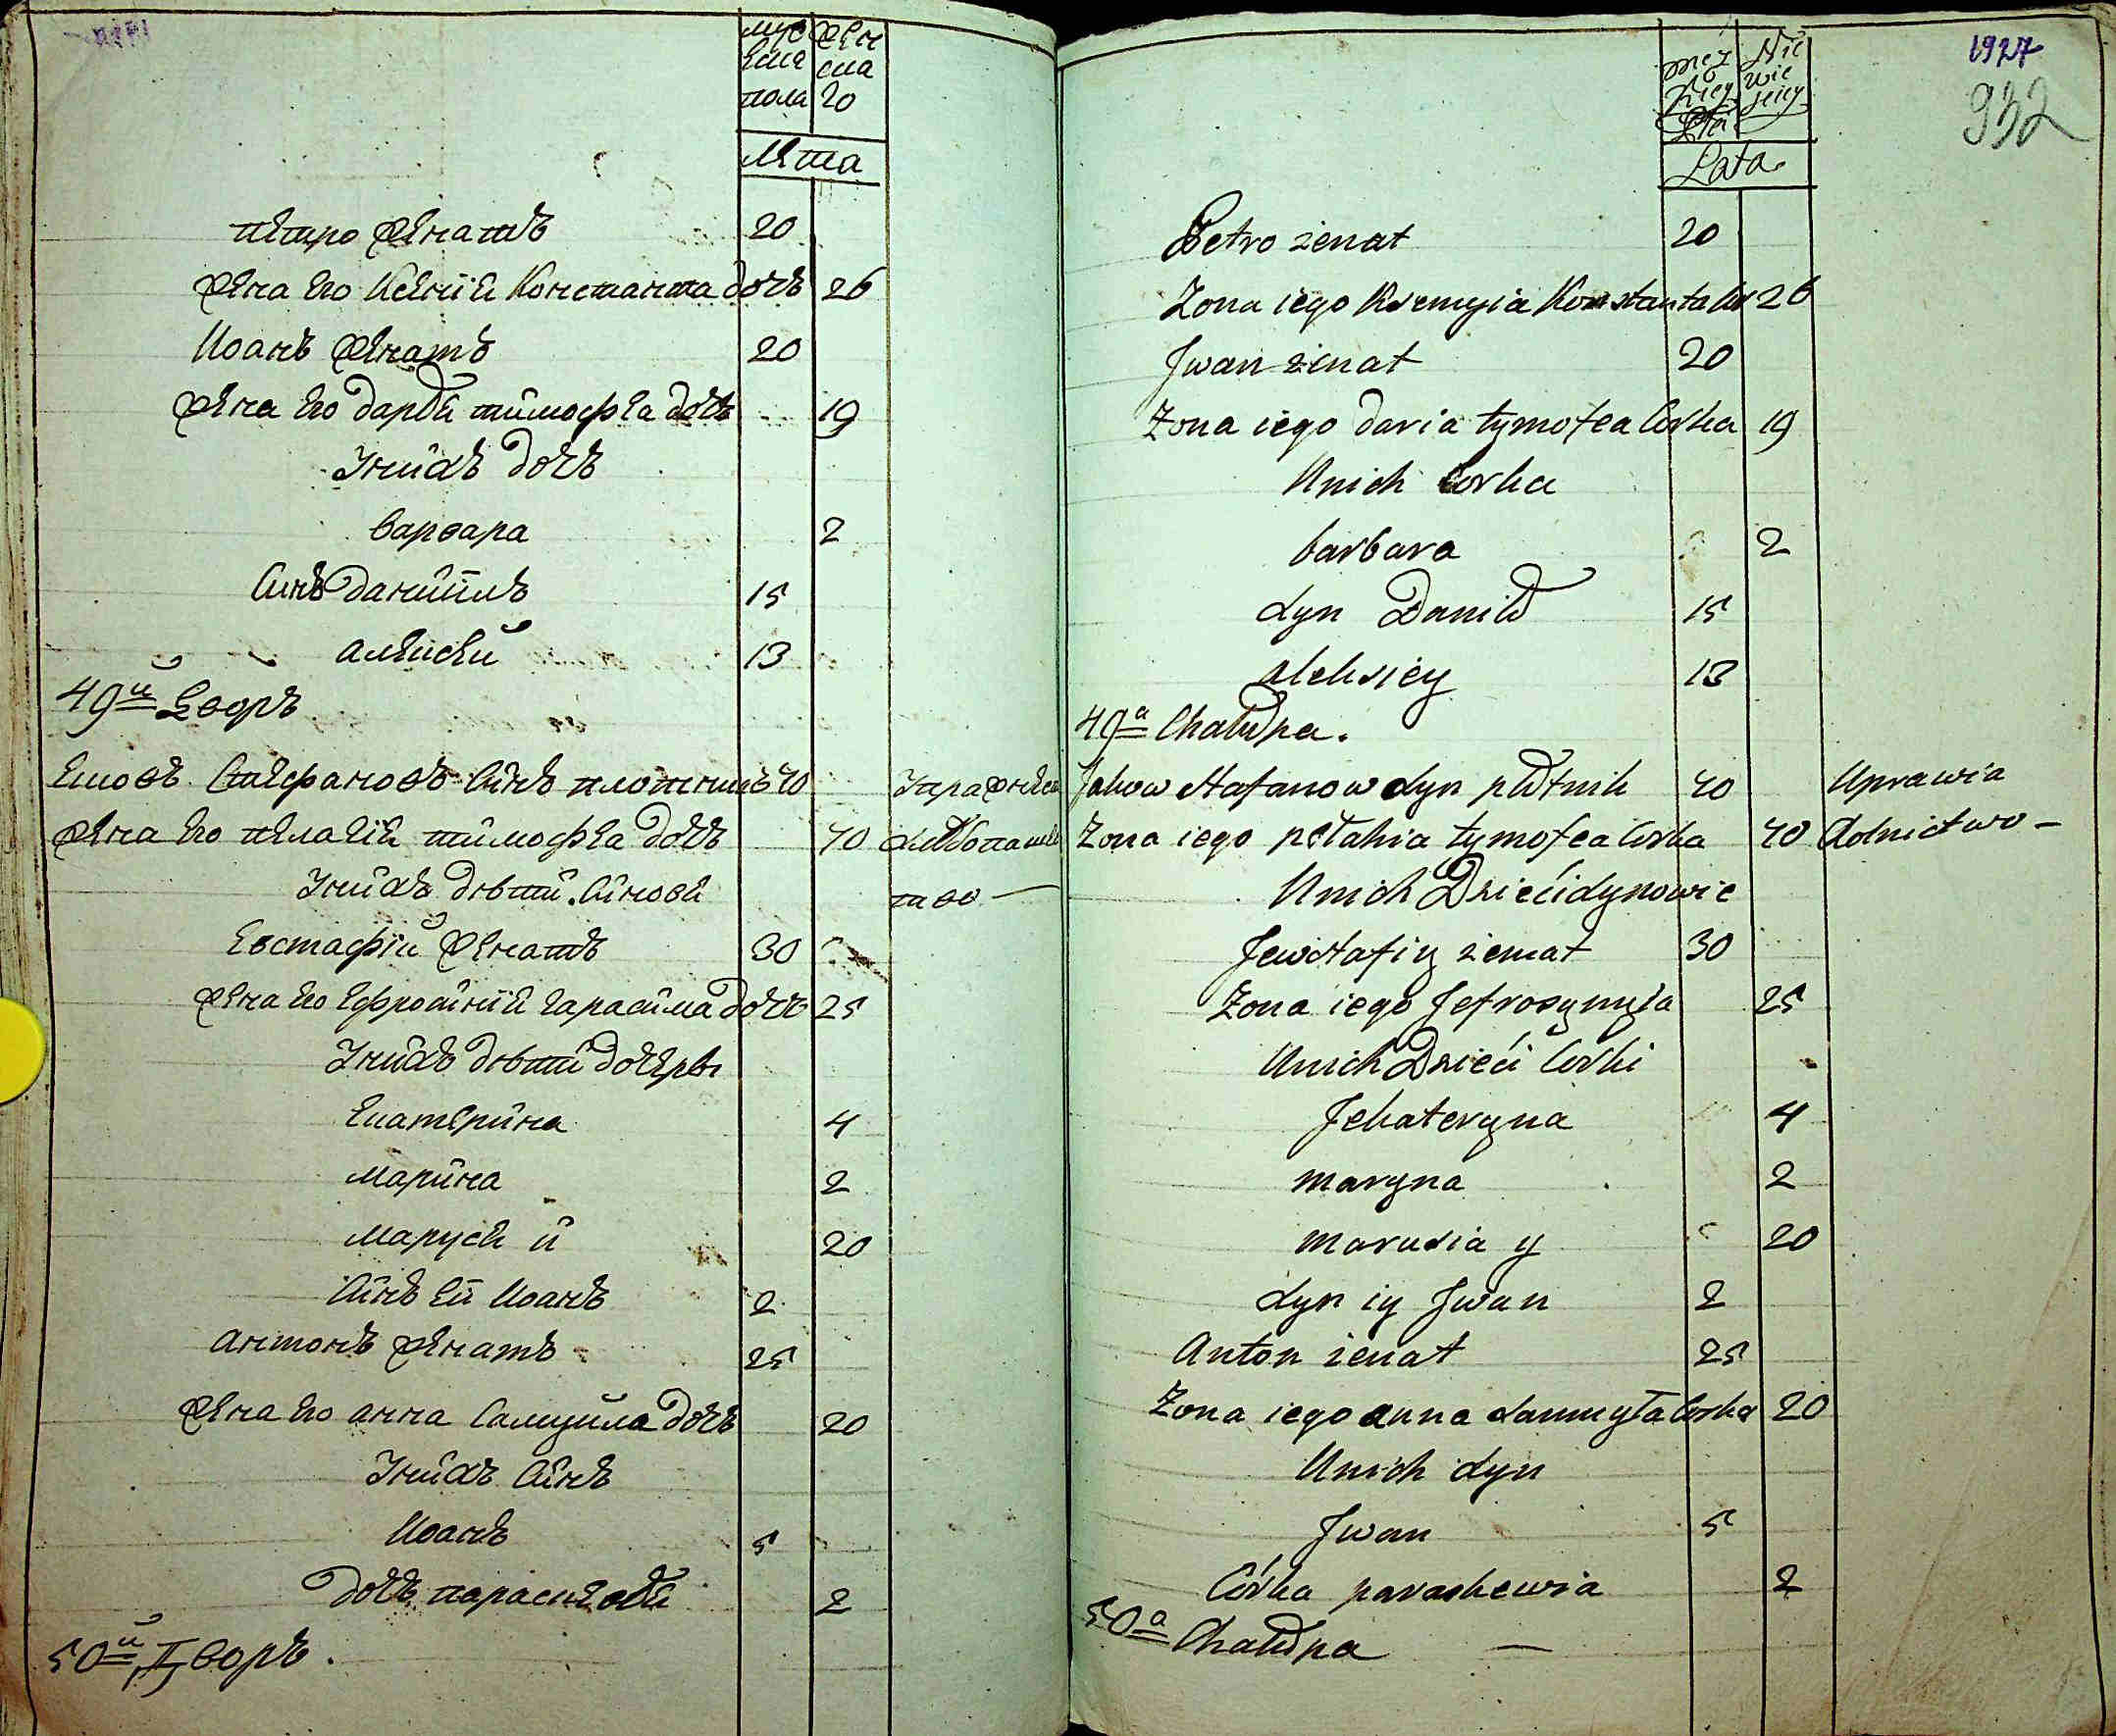 муж
ска
пола
жен
ска
го
Лѣта
Петро женатъ 20
Жена его Ксенія Константа дочь 26
Иоанъ женатъ 20
Жена его Дарья Тимофѣа дочь 19
У нихъ дочь
Варвара 2
Синъ Даниїлъ 15
Алексей 13
49й Дворъ
Яковъ Стефановъ Синъ плотникъ 40
Жена его Пелагія Тимофѣа дочь 40
У нихъ дѣти Синовя
Евстафій женатъ 30
Жена его Ефросинія Гарасима дочь 25
У нихъ дѣти дочеры
Екатерина 4
Марина 2
Маруся и 20
Синъ ей Иоанъ 2
Антонъ женатъ 25
Жена его Анна Самуила дочь 20
У нихъ Синъ
Иоанъ 5
дочь параскевія 2
50й Дворъ.
Упражняе
хлѣбопаше
тво —
1927
932
męz
kiey
Nie
wie
sciey
Płci
Lata
Petro żenat 20
Zona iego Ksenyia Konstanta 26
Jwan żenat 20
Zona iego daria tymofea Corka 19
Unich Corka
barbara 2
Syn Daniło 15
aleksiey 13
49a Chałupa.
Jakow Stefanow Syn płotnik 40
Zona iego pełahia tymofea Corka 40
Unich Dzieci Synowie
Jewstafiy żenat 30
Zona iego Jefrosynyia 25
Unich Dzieci Corki
Jekateryna 4
maryna 2
marusia y 20
Syn iy Jwan 2
Anton żenat 25
Zona iego anna Samuyła Corka 20
Unich Syn
Jwan 5
Córka paraskewia 2
50a Chałupa —
Uprawia
Rolnictwo —